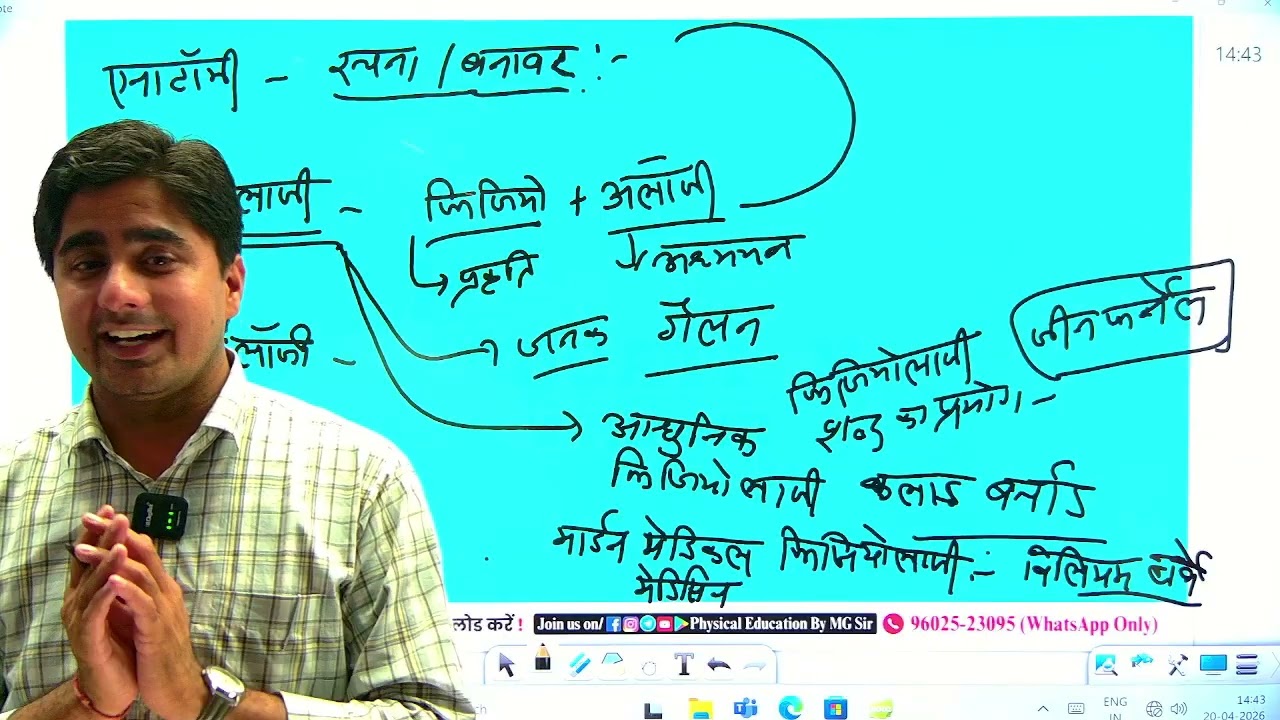 14:43
एनाटॉमी - रचना / बनावट :-
लाजी - फिजियो + अलॉजी
प्रकृति अध्ययन
जनक गैलन
लॉजी -
फिजियोलाजी
शब्द का प्रयोग - जीन फर्नेल
आधुनिक
फिजियोलाजी क्लाड बर्नाड
मार्डन मेडिकल फिजियोलाजी :- विलियम
मेडिसिन
लोड करें ! Join us on/ Physical Education By MG Sir 96025-23095 (WhatsApp Only)
T
ENG
IN
14:43
20-04-2026